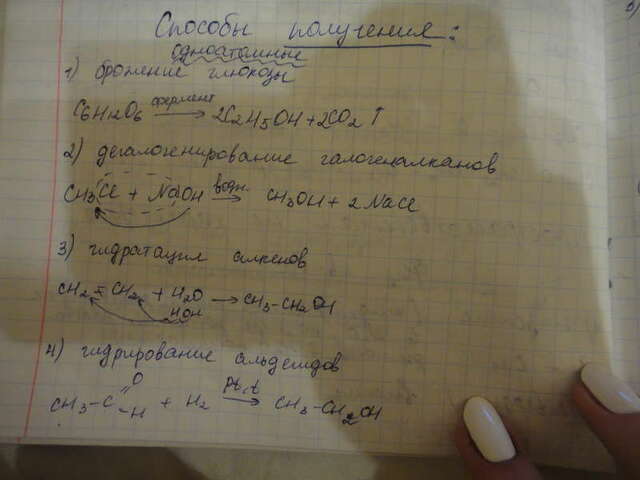 Способы получения:
одноатомные
1) брожение глюкозы
C6H12O6 фермент → 2C2H5OH + 2CO2 ↑
2) дегалогенирование галогеналканов
CH3Cl + NaOH водн. → CH3OH + 2 NaCl
3) гидратация алкенов
CH2 = CH2 + H2O → CH3-CH2OH
HOH
4) гидрирование альдегидов
CH3-C=O-H + H2 Pt, t → CH3-CH2OH